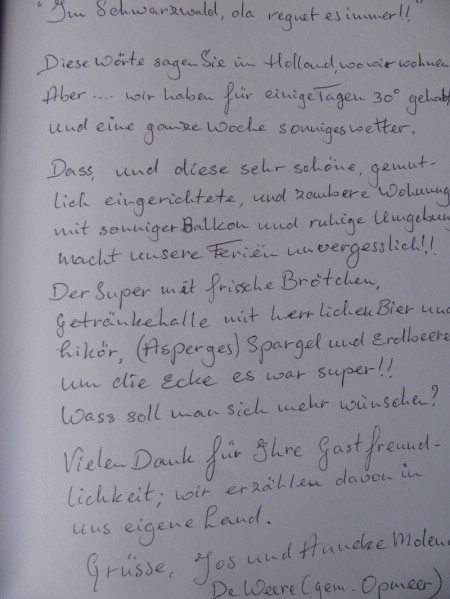 "Im Schwarzwald, da regnet es immer!!"
Diese Wörte sagen Sie in Holland, wo wir wohnen
Aber .... wir haben für einige Tagen 30° gehabt
und eine ganze Woche sonniges wetter.
Dass, und diese sehr schöne, gemut-
lich eingerichtete, und zaubere Wohnung
mit sonniger Balkon und ruhige Umgebun
macht unsere Ferien unvergesslich!!
Der Super mit frische Brötchen,
Getränkehalle mit herrlichen Bier und
likör, (Asperges) Spargel und Erdbeere
um die Ecke es war super!!
Wass soll man sich mehr wünschen?
Vielen Dank für Ihre Gastfreund-
lichkeit; wir erzählen davon in
uns eigene Land.
Grüsse, Jos und Molen
De Weere (gem. Opmeer)